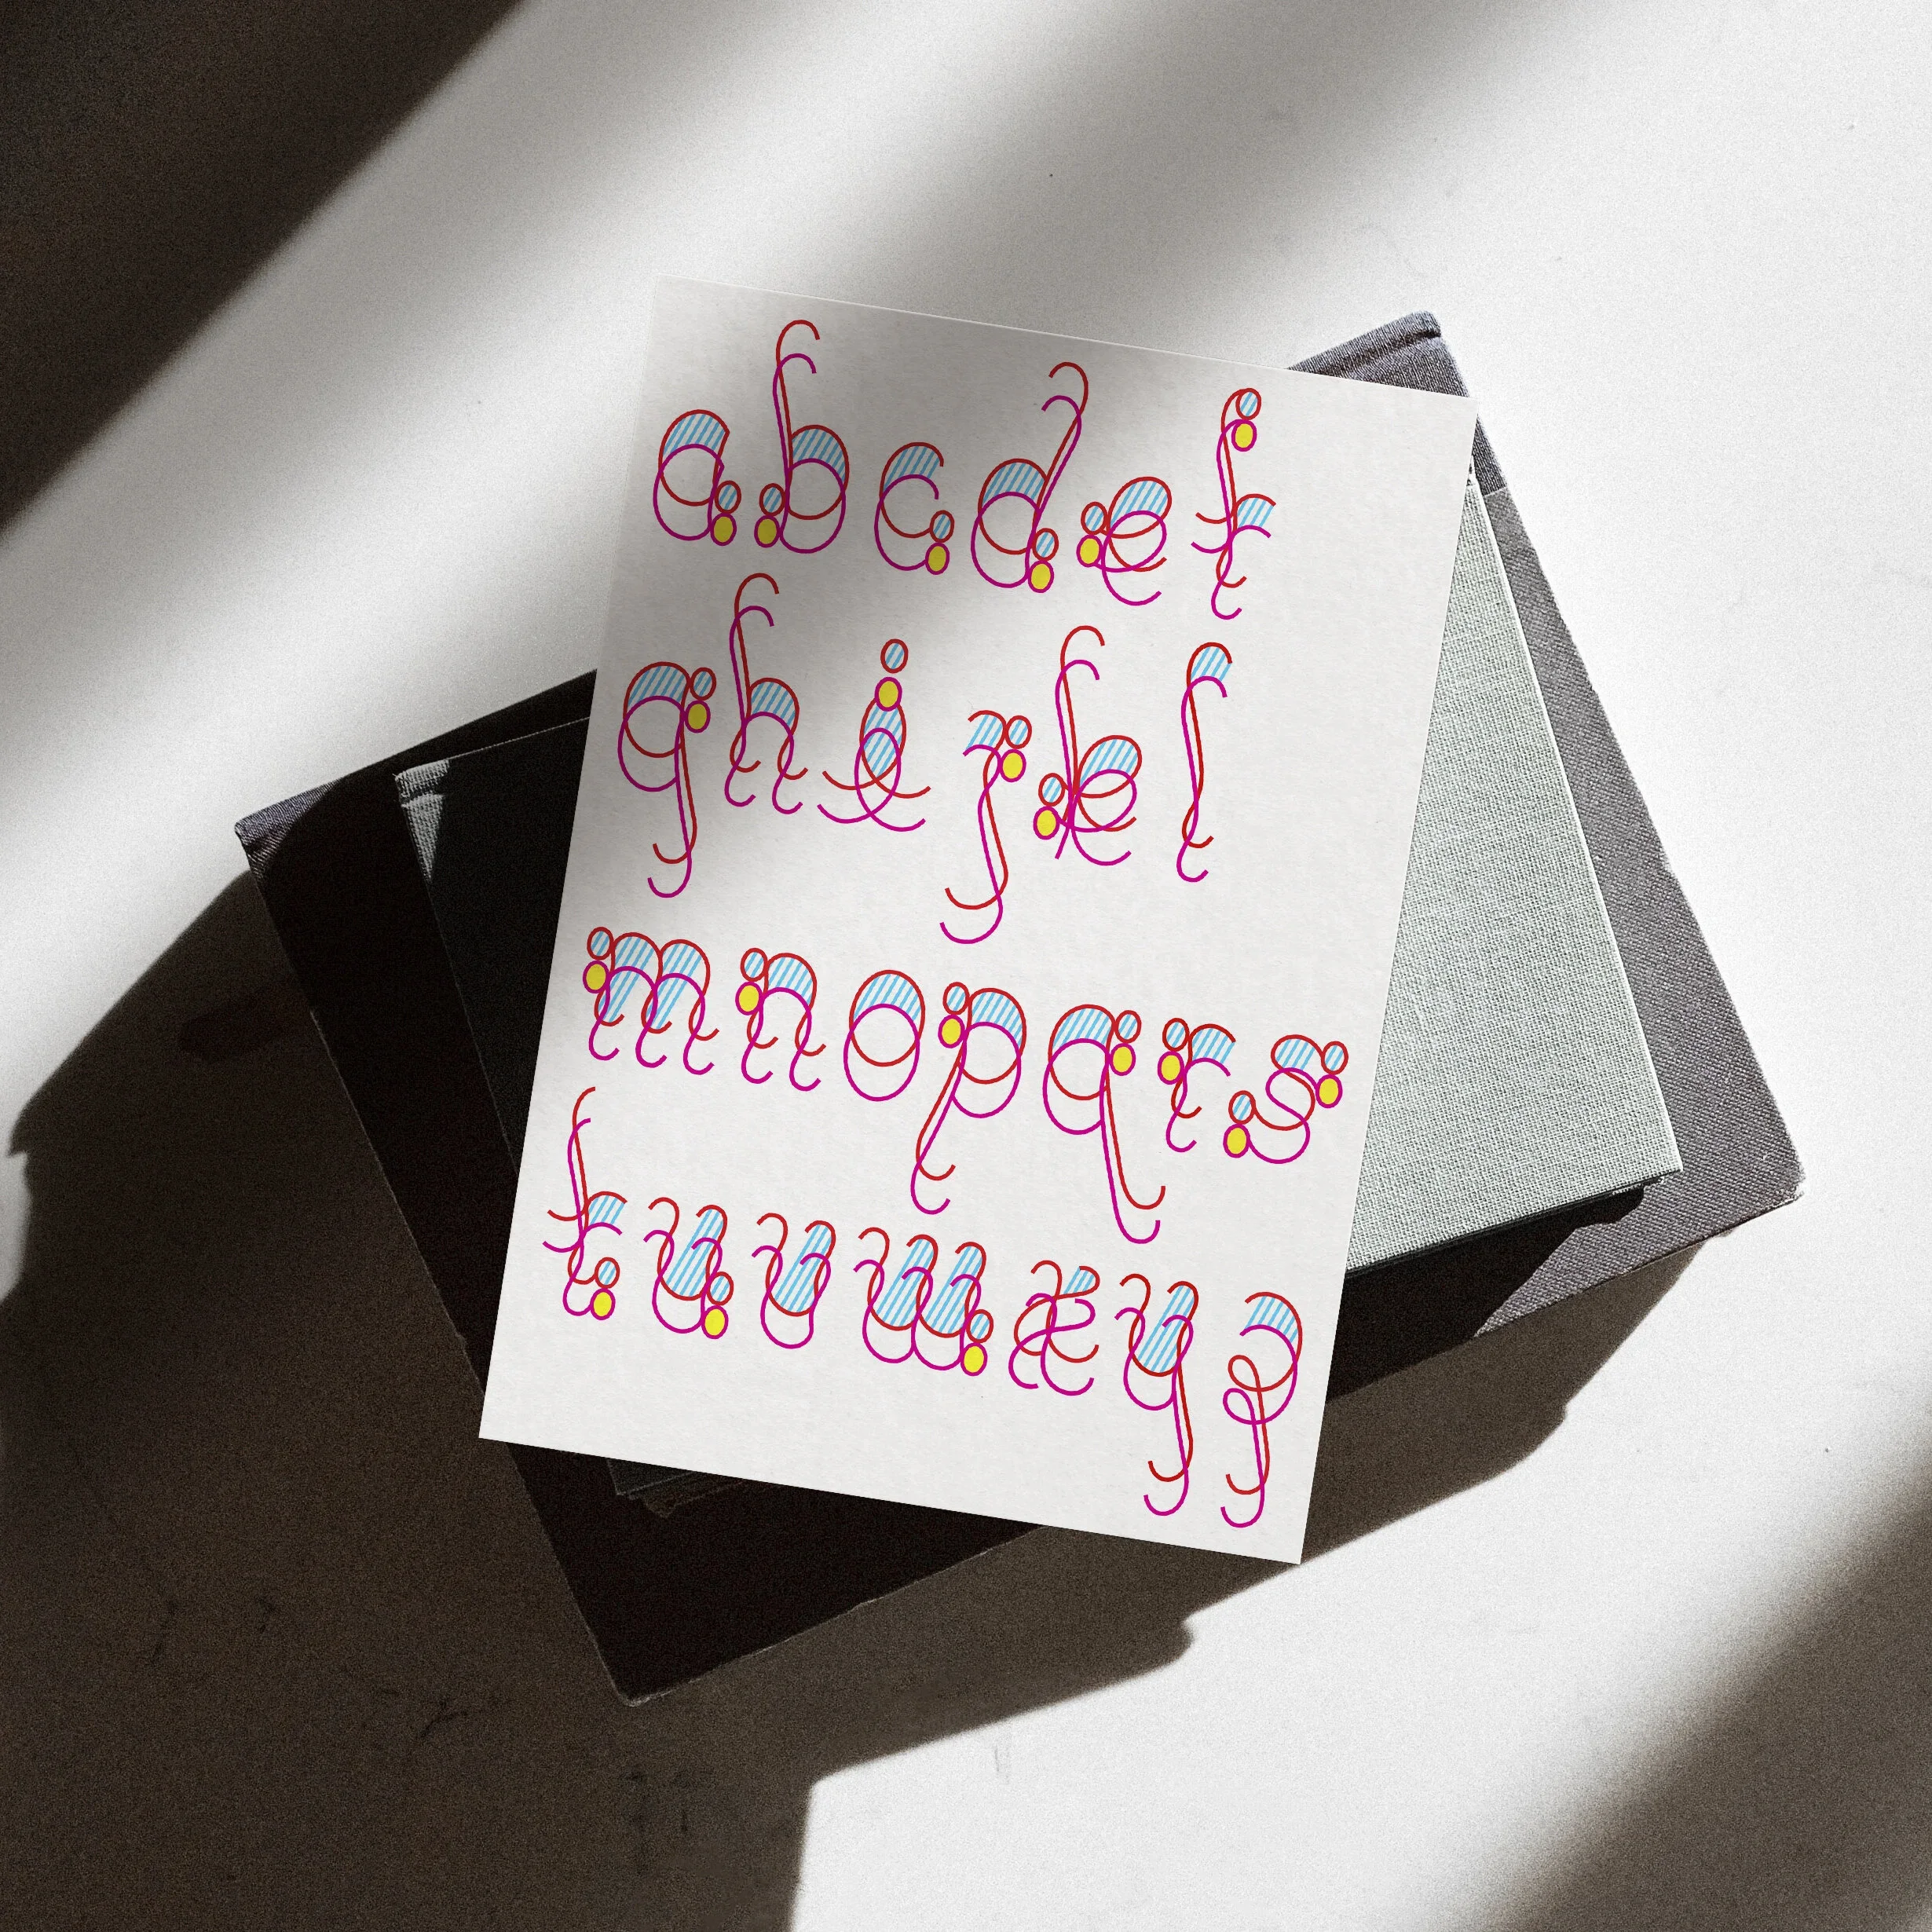 abcdef
ghijkl
mnopqrs
tuvwxyz